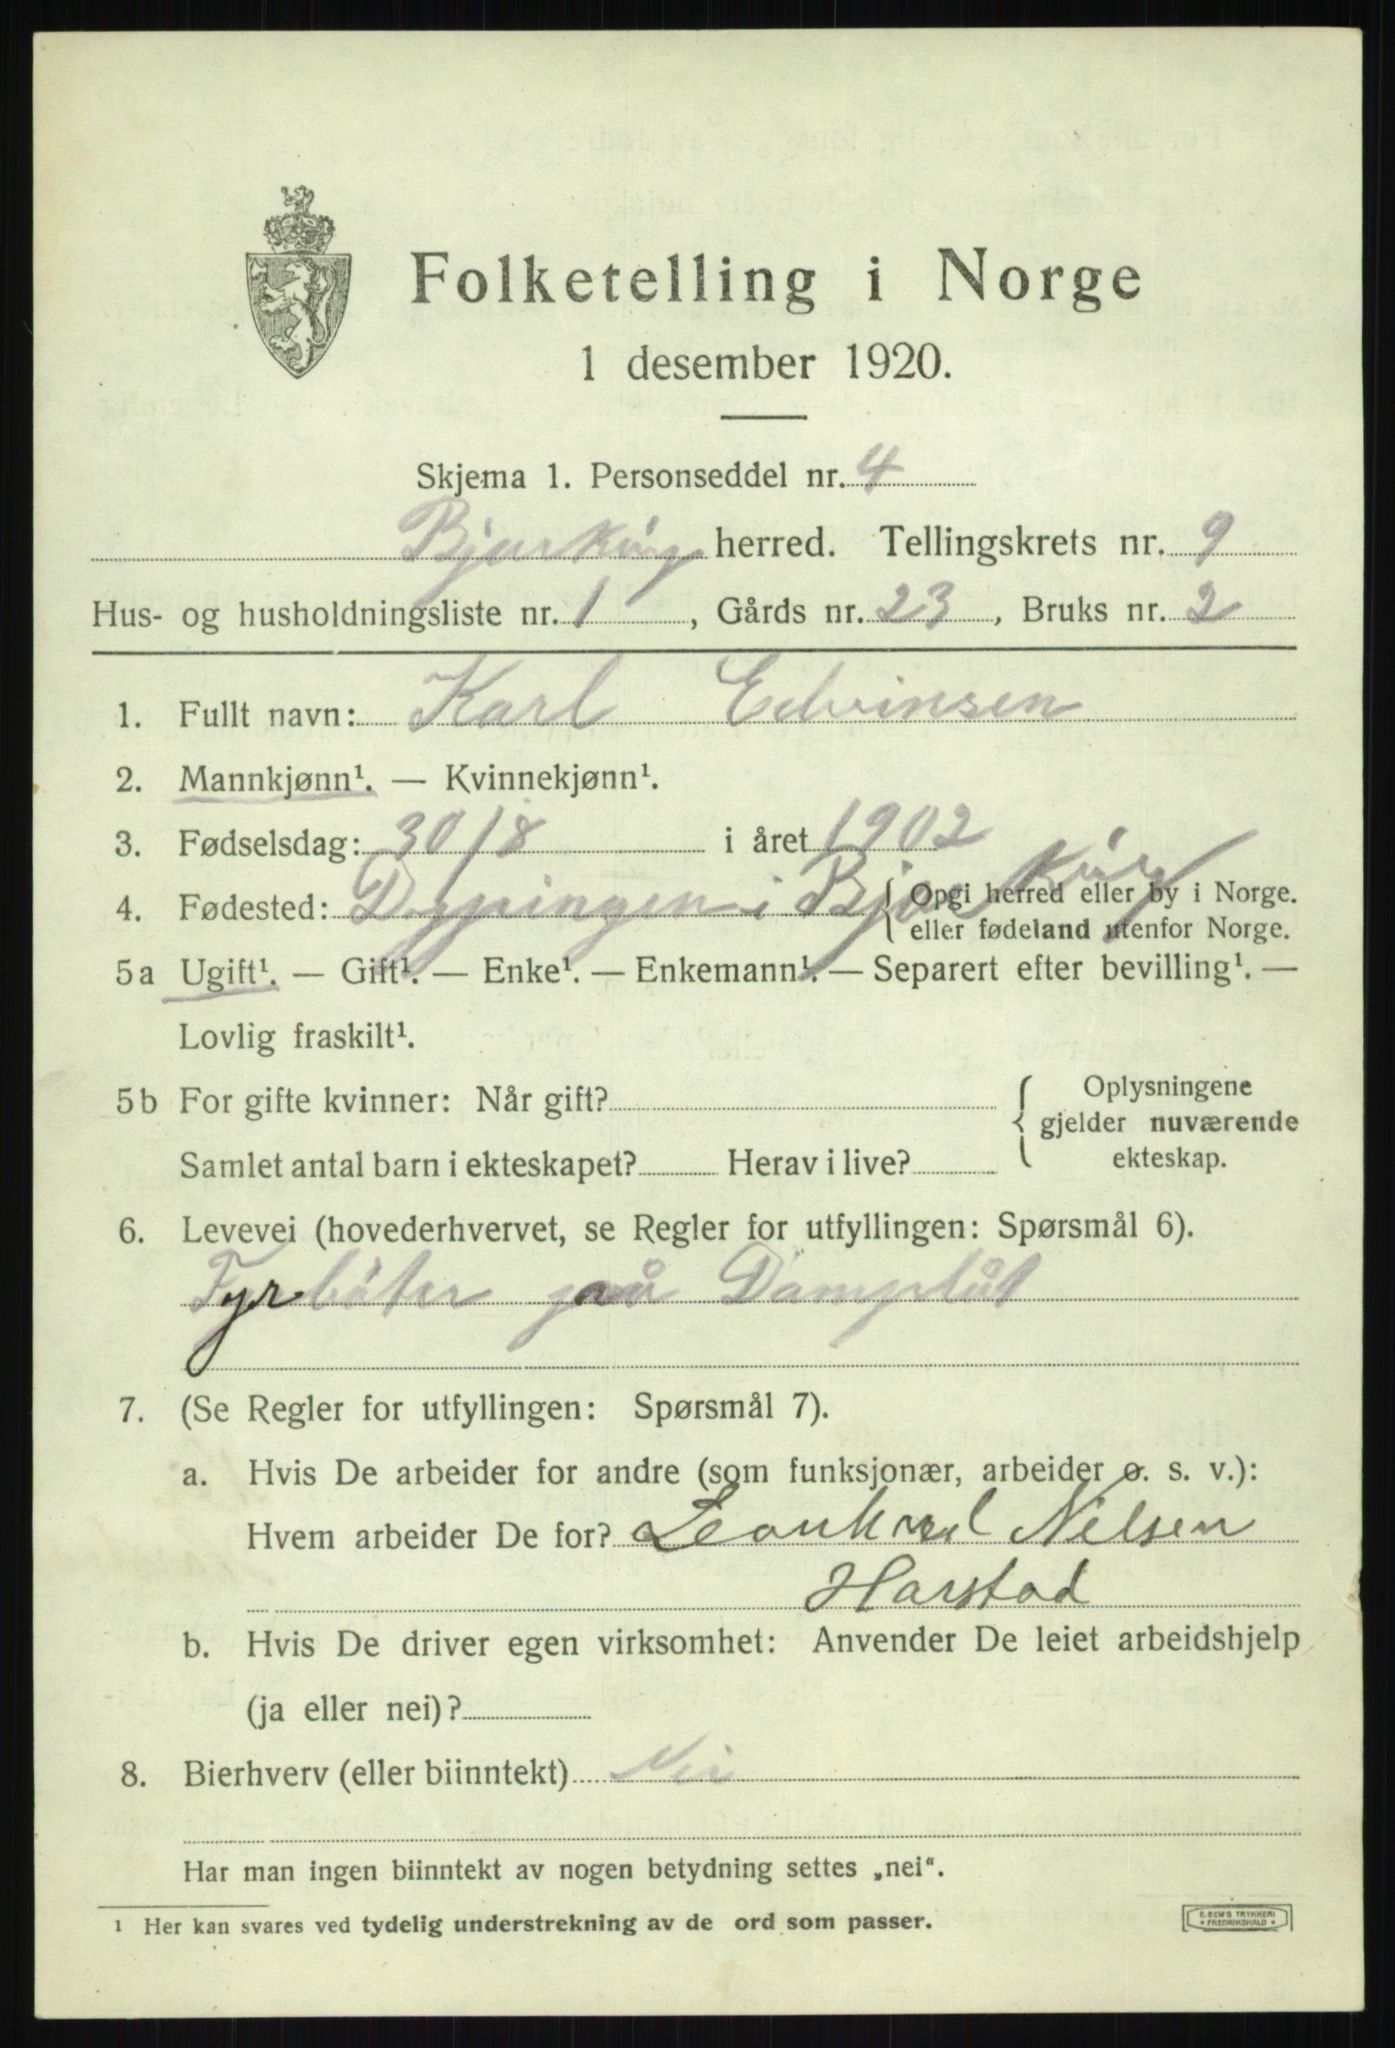 Folketelling i Norge
1 desember 1920.
Skjema 1. Personseddel nr. 4
Bjarköy herred. Tellingskrets nr. 9
Hus- og husholdningsliste nr. 1, Gårds nr. 23, Bruks nr. 2
1. Fullt navn: Karl Edvinsen
2. Mannkjønn¹. — Kvinnekjønn¹.
3. Fødselsdag: 30/8 i året 1902
4. Fødested: Dypingen i Bjarköy { Opgi herred eller by i Norge.
eller fødeland utenfor Norge.
5a Ugift¹. — Gift¹. — Enke¹. — Enkemann¹. — Separert efter bevilling¹. —
Lovlig fraskilt¹.
5b For gifte kvinner: Når gift? { Oplysningene
gjelder nuværende
Samlet antal barn i ekteskapet? Herav i live? ekteskap.
6. Levevei (hovederhvervet, se Regler for utfyllingen: Spørsmål 6).
Fyrböter paa Dampbåt
7. (Se Regler for utfyllingen: Spørsmål 7).
a. Hvis De arbeider for andre (som funksjonær, arbeider o. s. v.):
Hvem arbeider De for? Leonhard Nilsen
Harstad
b. Hvis De driver egen virksomhet: Anvender De leiet arbeidshjelp
(ja eller nei)?
8. Bierhverv (eller biinntekt) Nei
Har man ingen biinntekt av nogen betydning settes „nei“.
1 Her kan svares ved tydelig understrekning av de ord som passer.
E. SEM'S TRYKKERI
FREDRIKSHALD